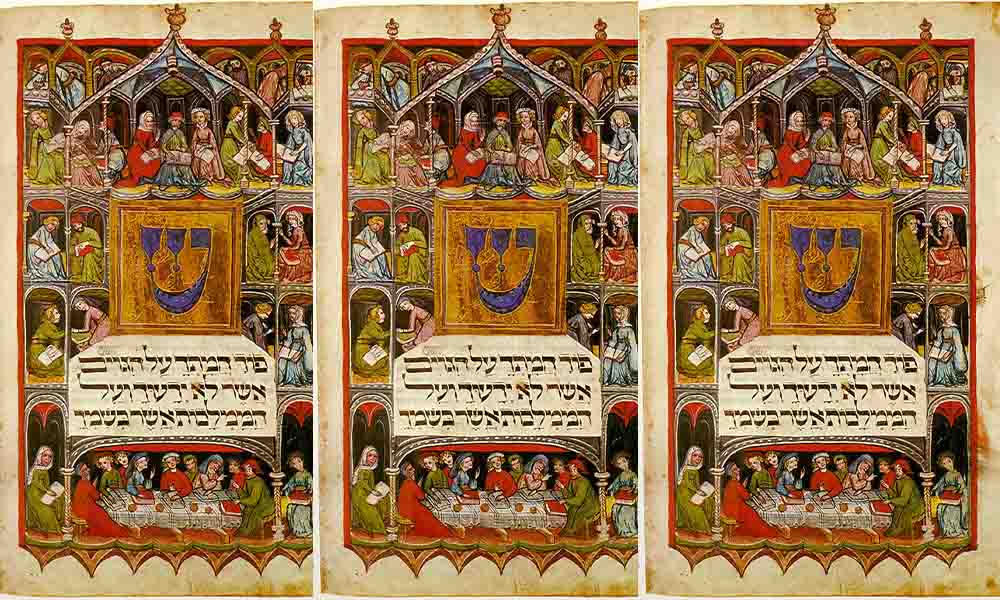 ש
פוך חמתך על הגוים
אשר לא ידעוך ועל
הממלכות אשר בשמך
ש
פוך חמתך על הגוים
אשר לא ידעוך ועל
הממלכות אשר בשמך
ש
פוך חמתך על הגוים
אשר לא ידעוך ועל
הממלכות אשר בשמך